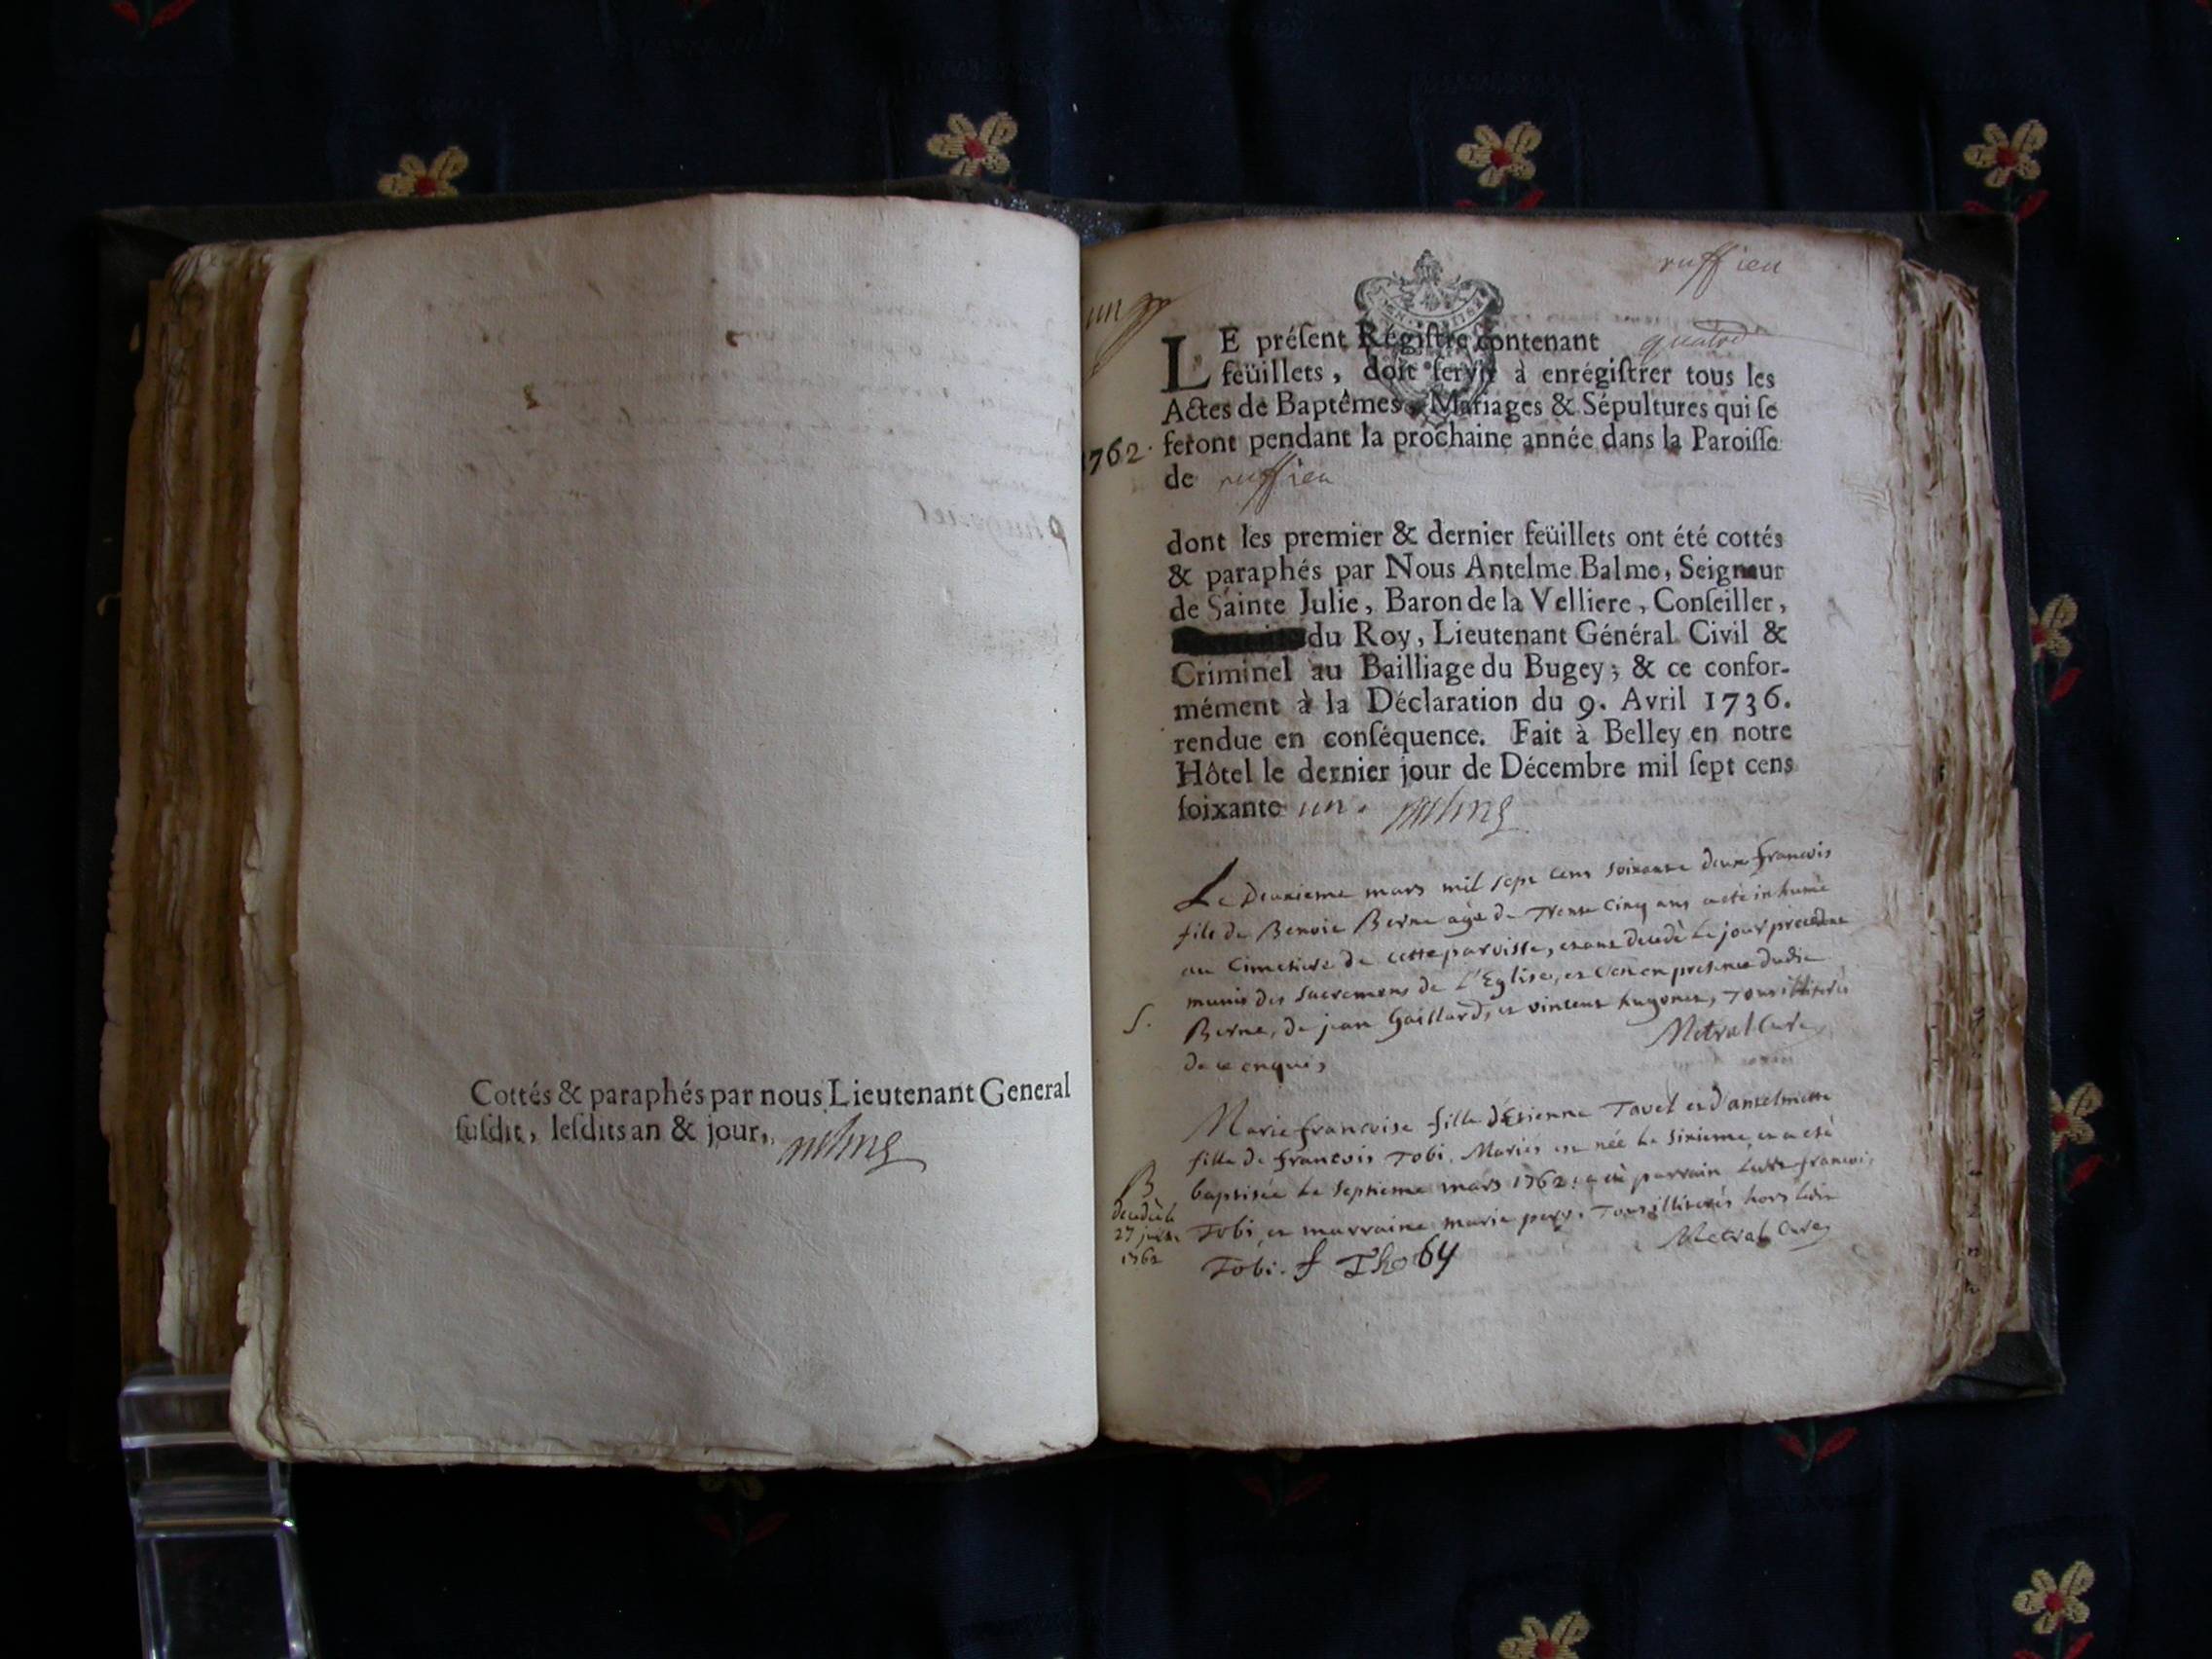 Cottés & paraphés par nous Lieutenant General
ſuſdit, leſdits an & jour,
ruffieu
un
LE préſent Régiſtre contenant quatorze
feüillets, doit ſervir à enrégiſtrer tous les
Actes de Baptêmes, Mariages & Sépultures qui ſe
1762. feront pendant la prochaine année dans la Paroiſſe
de ruffieu
dont les premier & dernier feüillets ont été cottés
& paraphés par Nous Antelme Balme, Seigneur
de Sainte Julie, Baron de la Velliere, Conſeiller,
du Roy, Lieutenant Général Civil &
Criminel au Bailliage du Bugey; & ce confor-
mément à la Déclaration du 9. Avril 1736.
rendue en conſéquence. Fait à Belley en notre
Hôtel le dernier jour de Décembre mil ſept cens
ſoixante un.
Le Deuxieme mars mil sept cens soixante deux francois
fils de Benoit Berne agé de Trente cinq ans a eté inhumé
au Cimetiere de cette paroisse, etant decedé le jour precedent
munis des Sacremens de l'Eglise, et ce en presence dudit
S. Berne, de jean Gaillard, et vincent hugonet, Tous illiterés
de ce enquis, Metral Curé
Marie francoise fille d'Etienne Tavel et d'antelmette
fille de francois Tobi. Mariés est née le sixieme, et a eté
B baptisée le septieme mars 1762: a eté parrain ledit francois
decedée le 27 juillet 1762
Tobi, et marraine marie pery. Tous illiterés hors ledit
Tobi. f Thoby Metral Curé